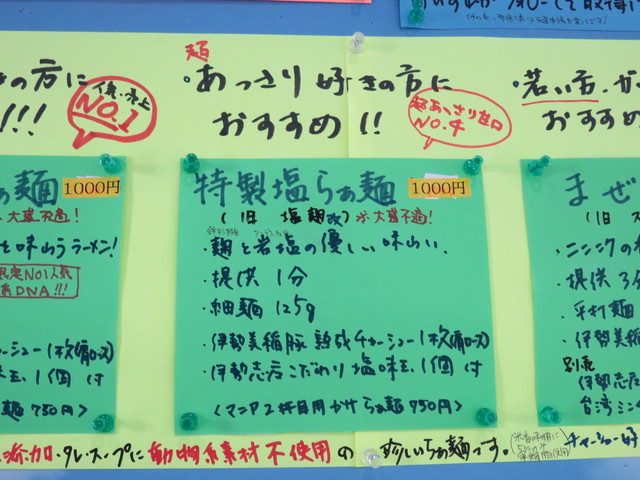 きの方に
!!!
人気・売上
NO.1
麺
・あっさり好きの方に
おすすめ!!
超あっさり辛口
NO.4
・若い方、か
おすすめ
麺 1000円
大盛不適!
と味わうラーメン!
限定NO1人気
DNA!!!
チャーシュー1枚(肩ロース)
味玉、1個 付
麺 750円〉
特製塩らぁ麺 1000円
(旧 塩麹改)※大盛不適!
・麹と岩塩の優しい味わい、
・提供 1分
・細麺 125g
・伊勢美稲豚 熟成チャーシュー1枚(肩ロース)
・伊勢志度こだわり 塩味玉、1個 付
〈マニア2杯目用かけらぁ麺 750円〉
まぜ
(旧
・ニンニクの
・提供 3分
・平打麺
・伊勢美稲
別売
伊勢志度
台湾ミン
添加・タレ・スープに動物系素材不使用の珍しいらぁ麺です。
チャーシュー好